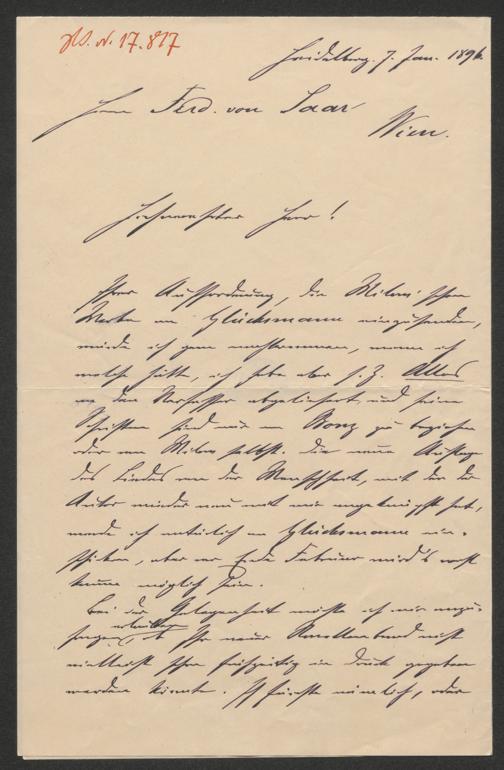 H. N. 17.817
Heidelberg. 7. Jan. 1896.
Herrn Ferd. von Saar
Wien.
Hochverehrter Herr!
Ihrer Aufforderung, die Milow'schen
Werke an Glücksmann einzusenden,
würde ich gern nachkommen, wenn ich
welche hätte, ich habe aber s. Z. Alles
an den Verfasser abgeliefert und seine
Schriften sind nur von Bonz zu beziehen
oder von Milow selbst. Die neue Auflage
des Liedes von der Menschheit, mit der der
Autor wieder neu mit mir angeknüpft hat,
werde ich natürlich an Glücksmann ein-
schicken, aber vor Ende Februar wird's wohl
kaum möglich sein.
Bei der Gelegenheit möchte ich mir anzu-
fragen erlauben, ob Ihr neuer Novellenband nicht
vielleicht schon frühzeitig in Druck gegeben
werden könnte. Ich fürchte nämlich, oder